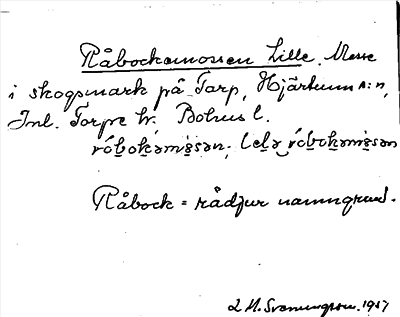 Råbockamossen Lille. Mosse
i skogsmark på Tarp, Hjärtums s:n,
Inl. Torpe hr. Bohus l.
rå̀bok̬amåsən, lɛlə rå̀bok̬əmåsən
Råbock = rådjur namngrund.
D. H. Svenungsson. 1917